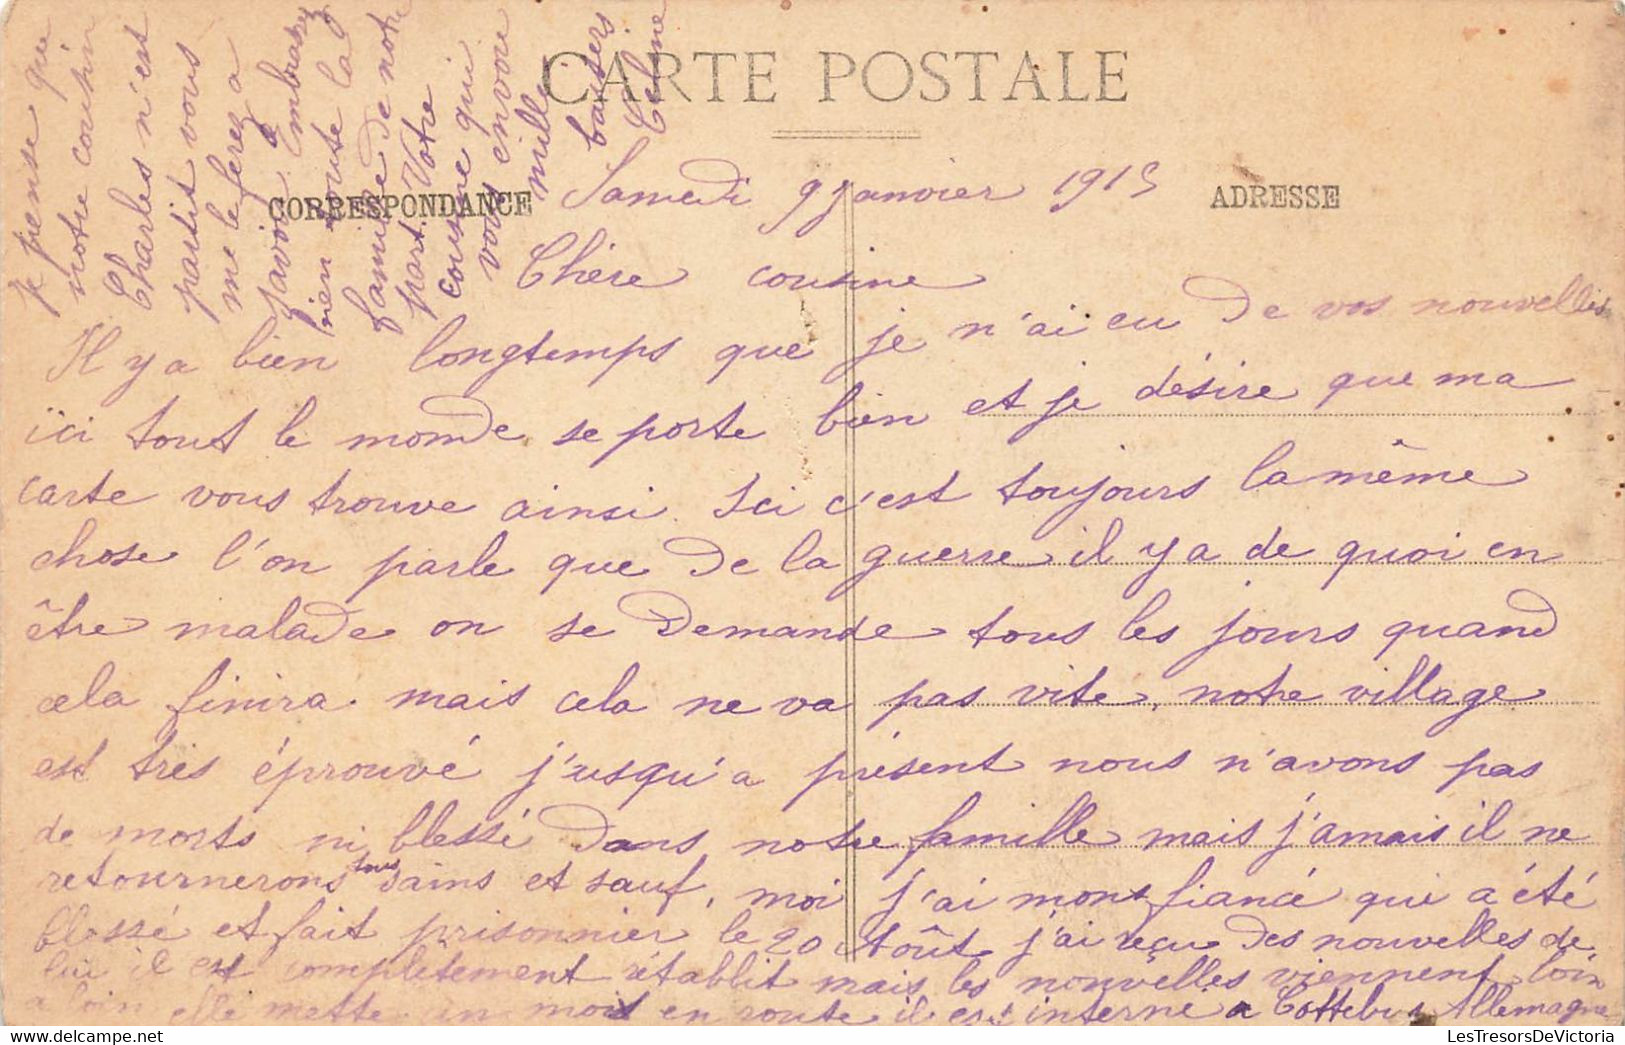 CARTE POSTALE
CORRESPONDANCE
ADRESSE
Samedi 9 janvier 1915
Chère cousine
Il y a bien longtemps que je n'ai eu de vos nouvelles
ici tout le monde se porte bien et je désire que ma
carte vous trouve ainsi. Ici c'est toujours la même
chose l'on parle que de la guerre il y a de quoi en
être malade on se demande tous les jours quand
cela finira. mais cela ne va pas vite, notre village
est très éprouvé j'usqu'a présent nous n'avons pas
de morts ni blessé dans notre famille mais j'amais il ne
retournerons tous sains et sauf, moi j'ai mons fiancé qui a été
blessé et fait prisonnier le 20 Août j'ai reçu des nouvelles de
lui il est complètement rétablit mais les nouvelles viennent loin
a loin elle mette un mois en route il est interné a Cottebus Allemagne
je pense que
notre cousin
Charles n'est
partit vous
me le ferez a
savoir. Embrassez
bien toute la
famille de notre
part. Votre
cousine qui
vous envoie
mille
baisers
Céline
LesTresorsDeVictoria